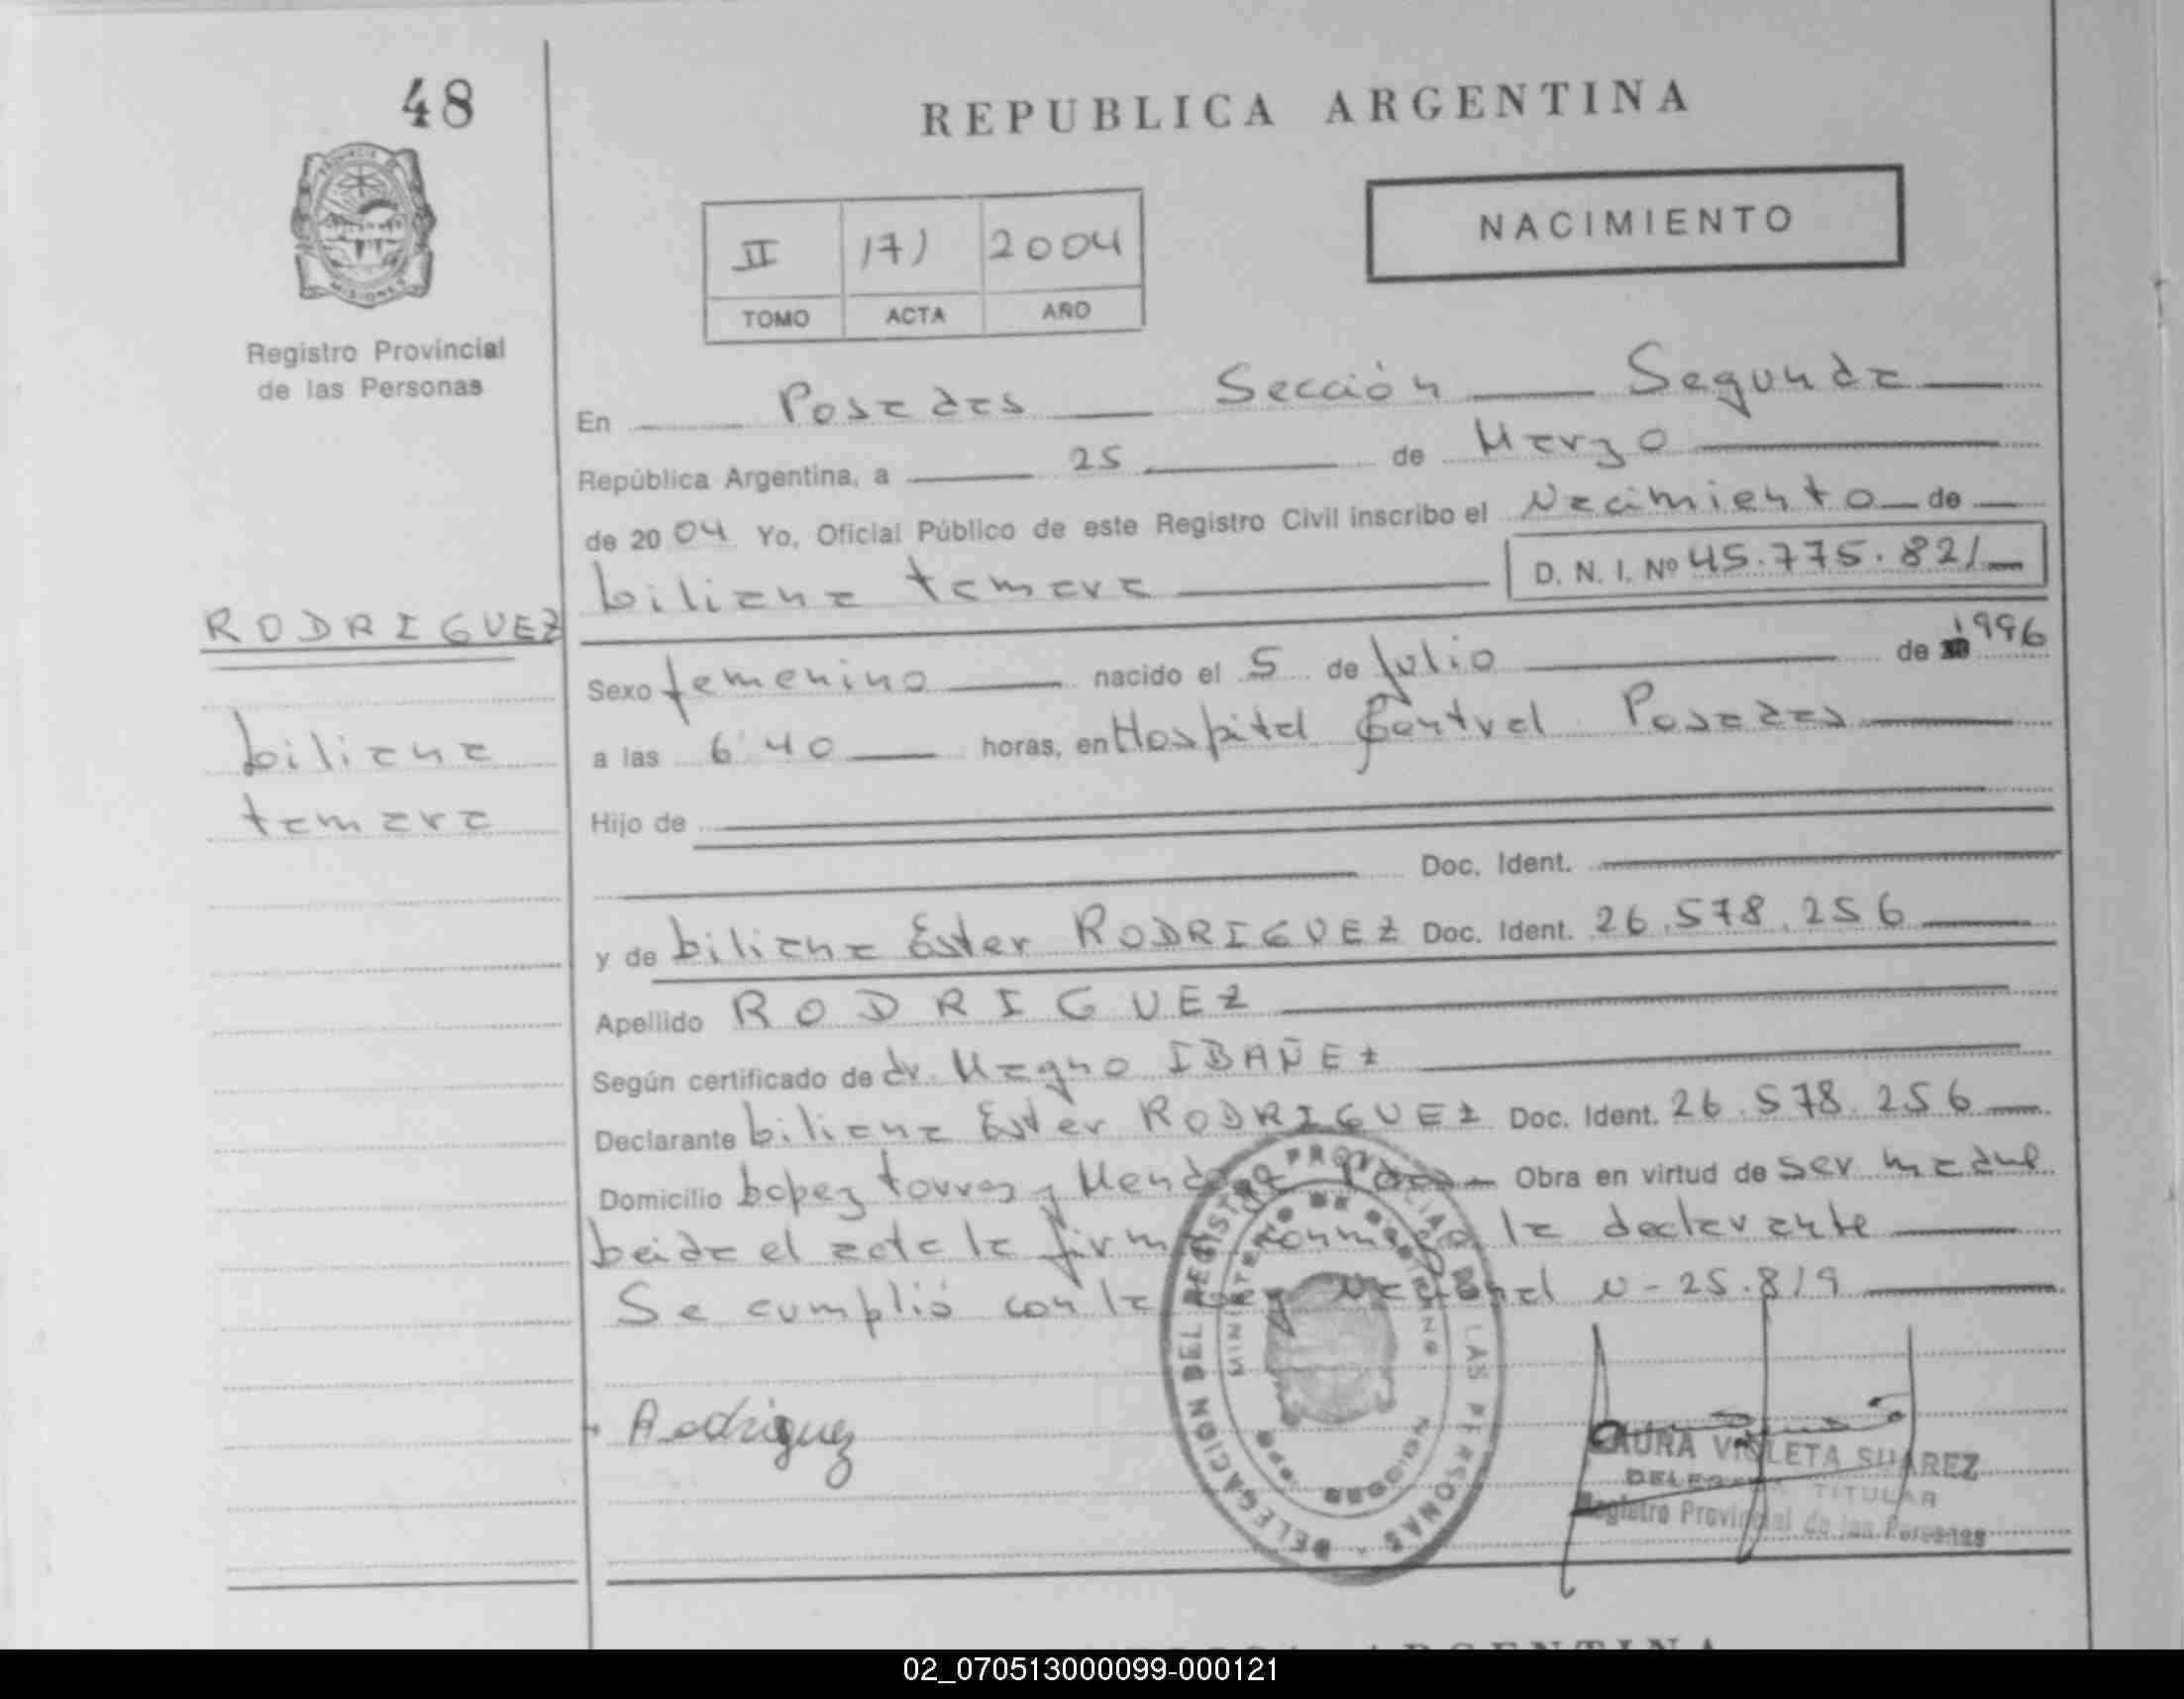 48
REPUBLICA ARGENTINA
NACIMIENTO
II 171 2004
TOMO ACTA AÑO
Registro Provincial
de las Personas
En Posadas Sección Segunda
República Argentina, a 25 de Marzo
de 2004 Yo, Oficial Público de este Registro Civil inscribo el Nacimiento de
Liliana tamara D. N. I. Nº 45.775.821
RODRIGUEZ
Sexo femenino nacido el 5 de Julio de 1996
Liliana
a las 6:40 horas, en Hospital Central Posadas
tamara
Hijo de
Doc. Ident.
y de Liliana Ester RODRIGUEZ Doc. Ident. 26.578.256
Apellido RODRIGUEZ
Según certificado de dr. Magno IBAÑEZ
Declarante Liliana Ester RODRIGUEZ Doc. Ident. 26.578.256
Domicilio Lopez torres y Obra en virtud de ser madre
Leida el acta la firma conmigo la declarante
Se cumplió con la Ley Nacional N- 25.819
Rodriguez
DELEGACION DEL REGISTRO PROVINCIAL DE LAS PERSONAS
MINISTERIO DE GOBIERNO
MISIONES
LAURA VIOLETA SUAREZ
DELEGADA TITULAR
Registro Provincial de las Personas
ARGENTINA
02_070513000099-000121